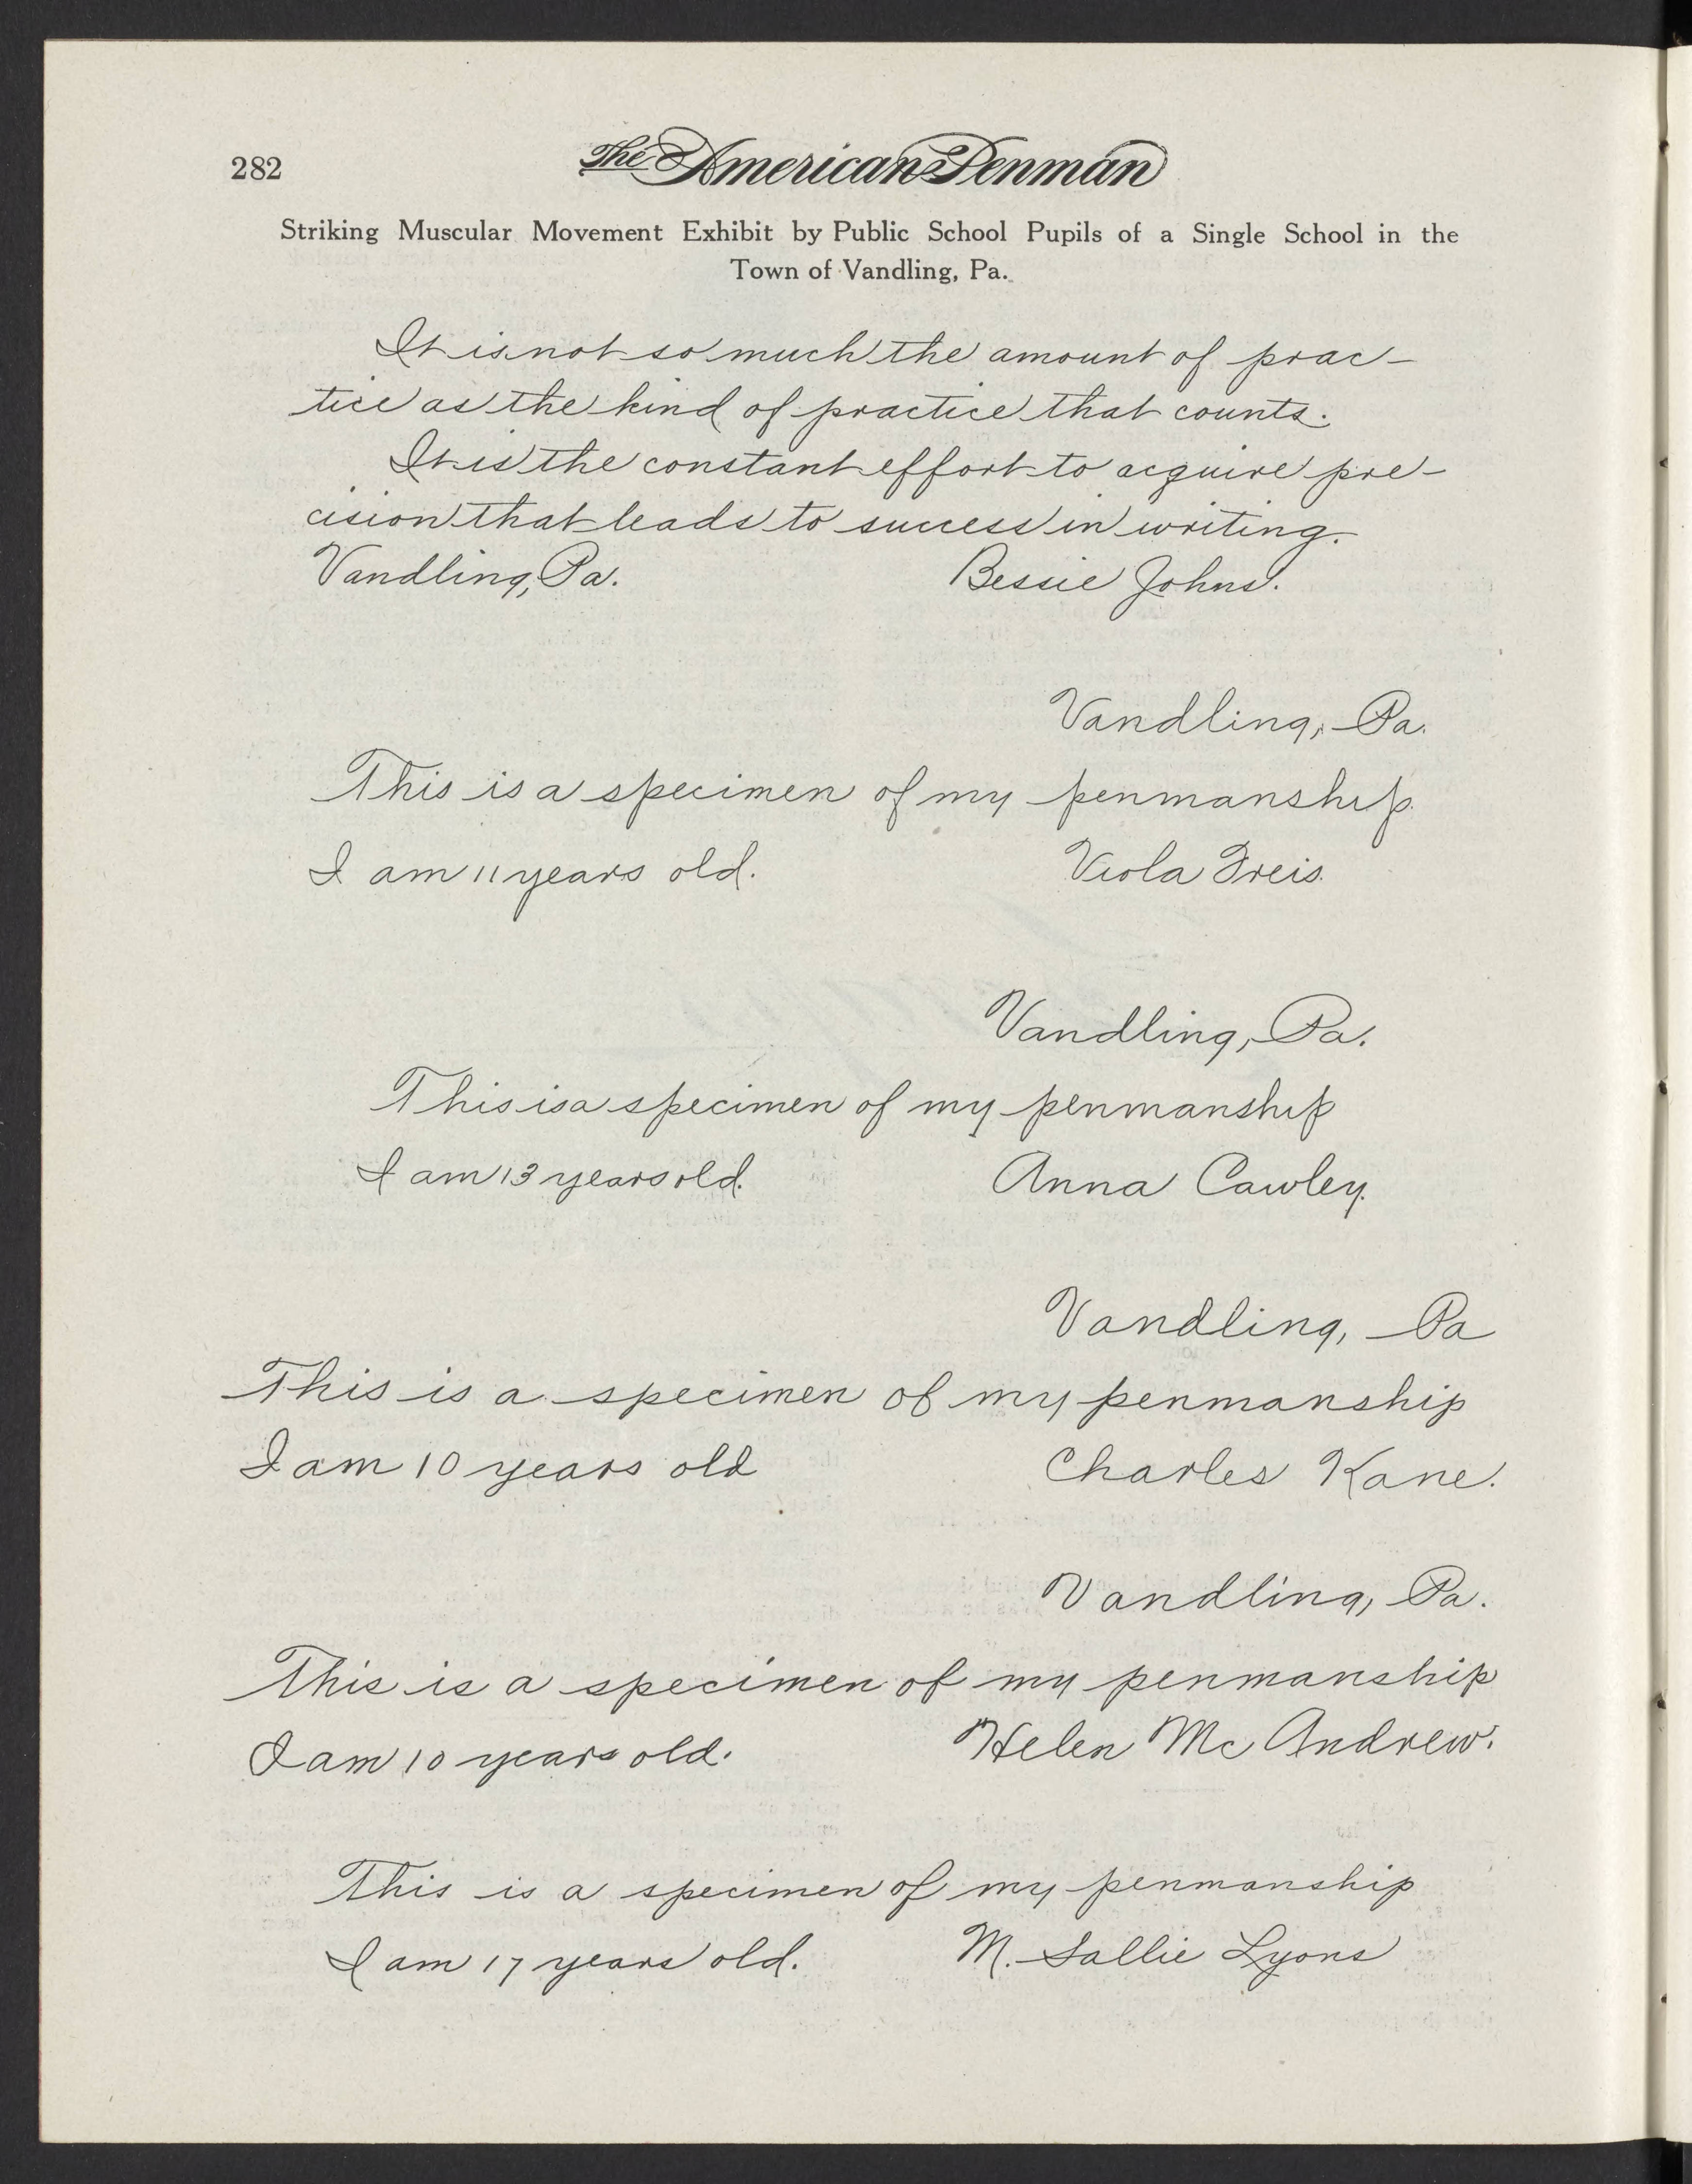 282
The American Penman
Striking Muscular Movement Exhibit by Public School Pupils of a Single School in the
Town of Vandling, Pa.
It is not so much the amount of prac-
tice as the kind of practice that counts.
It is the constant effort to acquire pre-
cision that leads to success in writing.
Vandling, Pa. Bessie Johns.
Vandling, Pa.
This is a specimen of my penmanship.
I am 11 years old. Viola Freis.
Vandling, Pa.
This is a specimen of my penmanship
I am 13 years old. Anna Cawley.
Vandling, Pa
This is a specimen of my penmanship
I am 10 years old Charles Kane.
Vandling, Pa.
This is a specimen of my penmanship
I am 10 years old. Helen Mc Andrew.
This is a specimen of my penmanship
I am 17 years old. M. Sallie Lyons